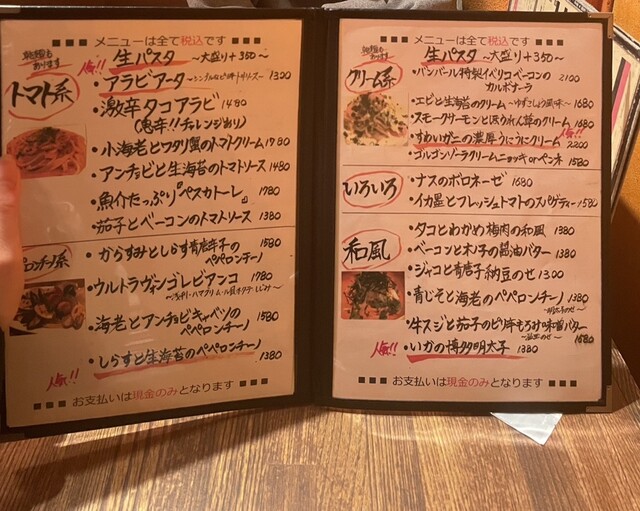 ■■■ メニューは全て税込です ■■■
乾麺も
あります
生パスタ ～大盛り+350～
トマト系
人気!!
・アラビアータ 1300
・激辛タコアラビ 1480
(鬼辛!!チャレンジあり)
・小海老とワタリ蟹のトマトクリーム 1780
・アンチョビと生海苔のトマトソース 1480
・魚介たっぷり『ペスカトーレ』 1780
・茄子とベーコンのトマトソース 1380
ペロンチーノ系
・からすみとしらす青唐辛子の 1580
ペペロンチーノ
・ウルトラヴォンゴレビアンコ 1780
・海老とアンチョビキャベツの 1580
ペペロンチーノ
・しらすと生海苔のペペロンチーノ 1380
人気!!
■■■ お支払いは現金のみとなります ■■■
■■■ メニューは全て税込です ■■■
乾麺も
あります
生パスタ ～大盛り+350～
クリーム系
・バンバール特製イベリコベーコンの 2100
カルボナーラ
・エビと生海苔のクリーム ～ゆずこしょう風味～ 1680
・スモークサーモンとほうれん草のクリーム 1680
人気!!
・ずわいガニの濃厚うにうにクリーム 2200
・ゴルゴンゾーラクリームニョッキorペンネ 1580
いろいろ
・ナスのボロネーゼ 1680
・イカ墨とフレッシュトマトのスパゲティー 1580
和風
・タコとわかめ梅肉の和風 1380
・ベーコンと木ノ子の醤油バター 1380
・ジャコと青唐子納豆のせ 1300
・青じそと海老のペペロンチーノ 1380
・牛スジと茄子のピリ辛もろみ味噌バター 1580
～温玉のせ～
人気!!
・いかの博多明太子 1380
■■■ お支払いは現金のみとなります ■■■